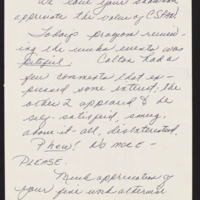 We love your show and
appreciate the value of CSPAN.
Today's program review-
ing the weeks events was
pitiful. Colton had a
few comments that ex-
pressed some interest, the
other 2 appeared to be
self-satisfied, smug,
above-it-all, disinterested.
Phew! No more -
PLEASE.
Much appreciation of
your fine work otherwise